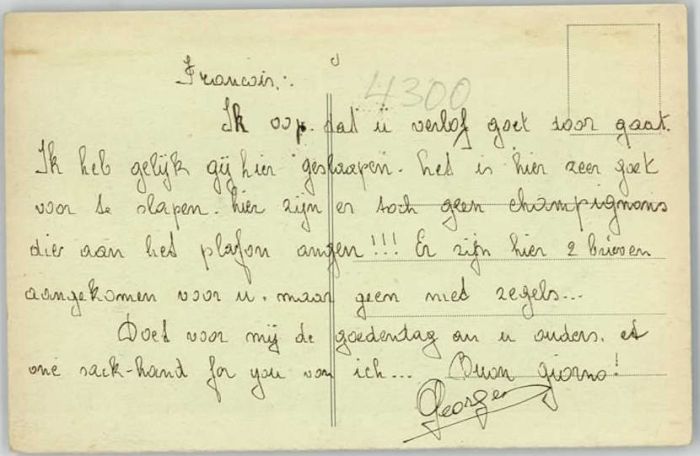 Francois,.
4300
Ik oop. dat ü verlof goet door gaat.
Ik heb gelijk gij hier geslaapen. het is hier zeer goet
voor te slapen. hier zijn er toch geen champignons
dier aan het plafon angen!!! Er zijn hier 2 brieven
aangekomen voor u. maar geen met zegels...
Doet voor mij de goedendag an u ouders. et
one sack-hand for you von ich... Buon giorno!
Georges